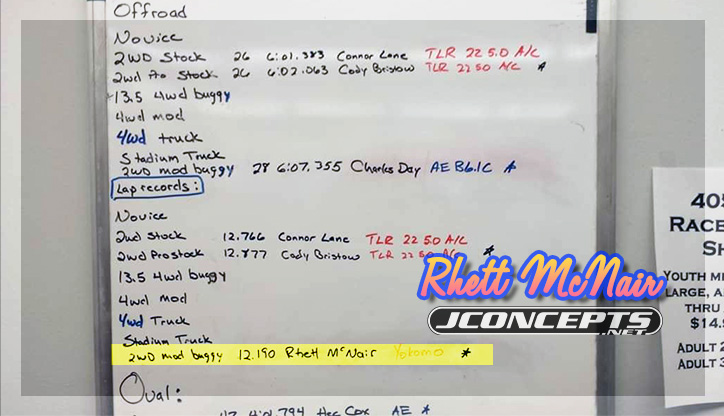 Offroad
Novice
2WD Stock 26 6:01.383 Connor Lane TLR 22 5.0 A/C
2wd Pro Stock 26 6:02.063 Cody Bristow TLR 22 5.0 A/C *
13.5 4wd buggy
4wd mod
4wd truck
Stadium Truck
2WD mod buggy 28 6:07.355 Charles Day AE B6.1C *
Lap records:
Novice
2wd Stock 12.766 Connor Lane TLR 22 5.0 A/C
2wd Pro Stock 12.877 Cody Bristow TLR 22 5.0 A/C *
13.5 4wd buggy
4wd mod
4wd Truck
Stadium Truck
2WD mod buggy 12.190 Rhett McNair Yokomo *
Oval:
AE *
Rhett McNair
JCONCEPTS
.NET
405
RACE
SH
YOUTH
LARGE, A
THRU
$14.
ADULT 2
ADULT 3